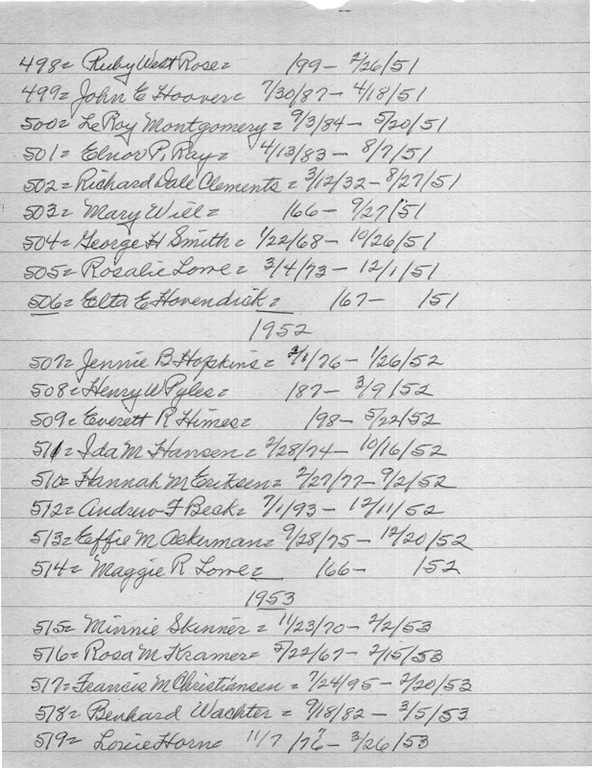 498= Ruby West Rose= /99- 2/26/51
499= John E Hoover= 7/30/87- 4/18/51
500= LeRoy Montgomery= 9/3/84- 5/20/51
501= Elnor P. Ray= 4/13/83- 8/7/51
502= Richard Dale Clements= 3/12/32- 8/27/51
503= Mary Will= /66- 9/27/51
504= George H Smith= 1/22/68- 10/26/51
505= Rosalie Lowe= 3/4/73- 12/1/51
506= Elta E Hovendick= /67- /51
1952
507= Jennie B Hopkins= 2/1/76- 1/26/52
508= Henry W Pyles= /87- 3/9/52
509= Everett R Himes= /98- 5/22/52
511= Ida M Hansen= 2/28/74- 10/16/52
510= Hannah M Eriksen= 2/27/77- 9/2/52
512= Andrew F Beck= 7/1/93- 12/11/52
513= Effie M Ackerman= 9/28/75- 12/20/52
514= Maggie R Lowe= /66- /52
1953
515= Minnie Skinner= 11/23/70- 2/2/53
516= Rosa M Kramer= 5/22/67- 2/15/53
517= Francis M Christiansen= 7/24/95- 2/20/53
518= Benhard Wachter= 9/18/82- 3/5/53
519= Horn= 11/7/76- 3/26/53